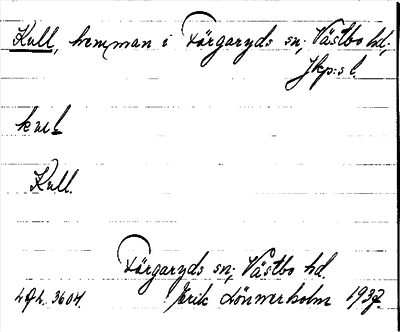 Kull, hemman i Färgaryds sn, Västbo hd,
Jkp:s l.
kul
Kull.
Färgaryds sn, Västbo hd.
Erik Lönnerholm 1937.